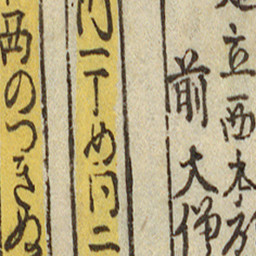 立西本
前大僧
同一丁め同二
西のつきぬ